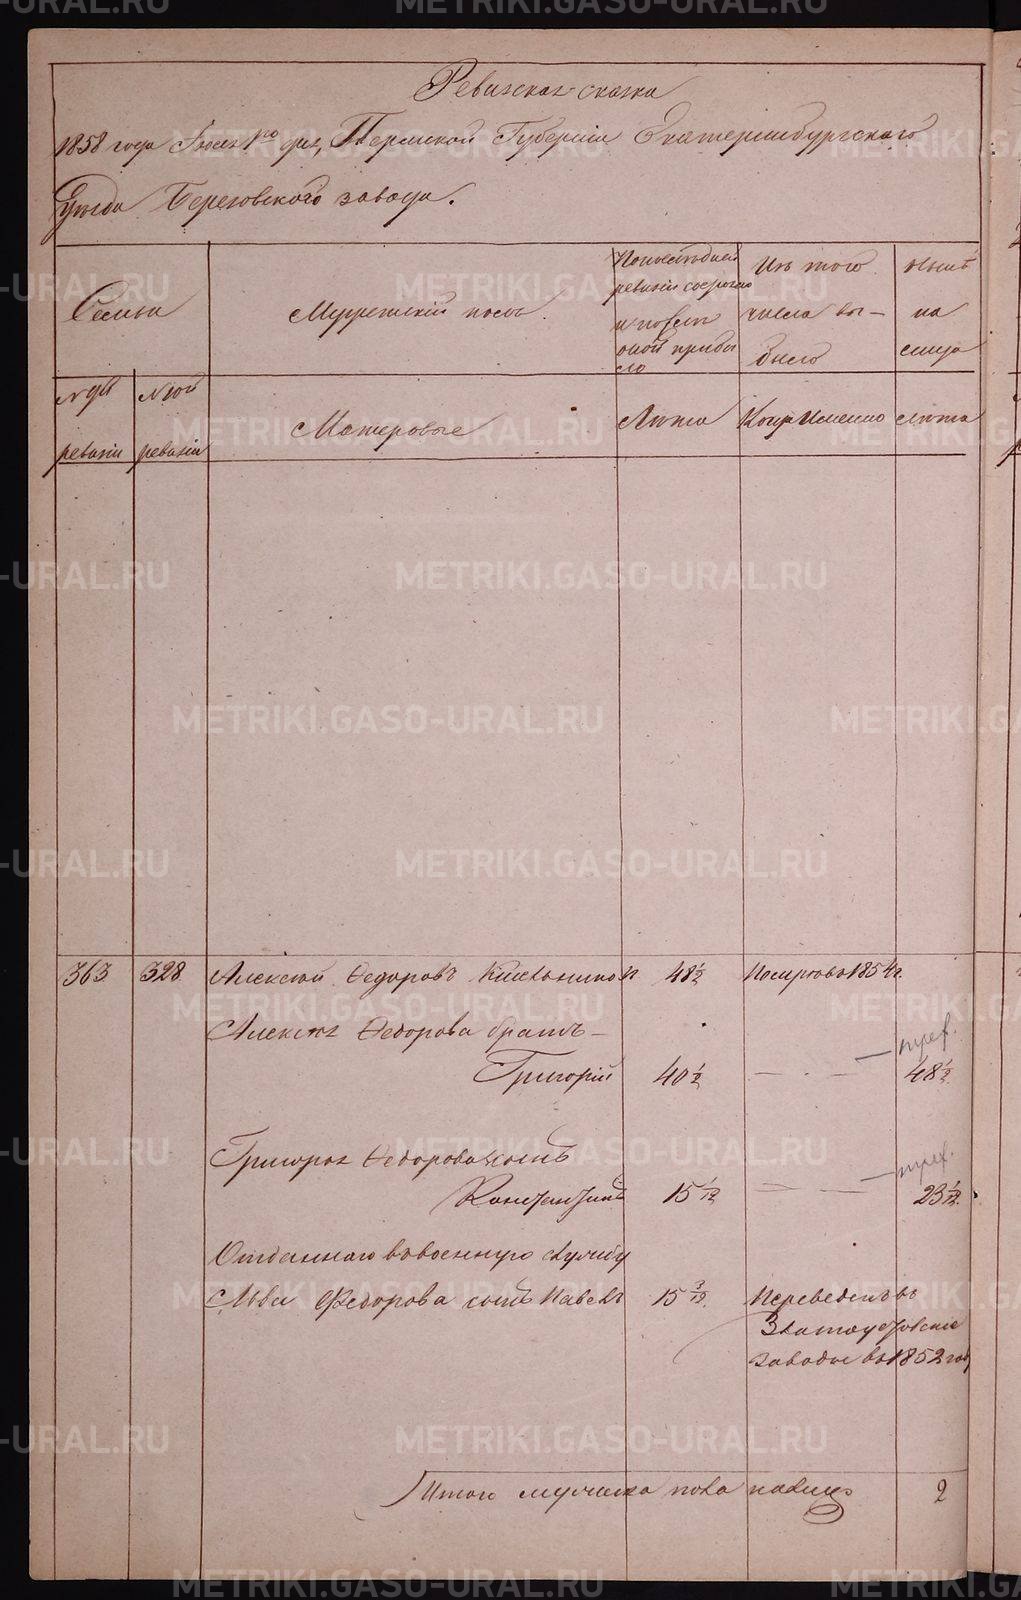 Ревизская сказка
1858 года Июня 1го дня, Пермской Губерніи Екатеринбургскаго
Уѣзда Березовскаго завода.
Семьи
Мужескій полъ.
По последней
ревизіи состояло
и после
оной прибы
ло
Изъ того
числа вы–
было
Нынѣ
на
лицо
№ 9й
ревизіи
№ 10й
ревизіи
Мастеровые
Лѣта
Когда Именно
Лѣта
363
328
Алексѣй Ѳедоровъ
48 1/2
Померъ въ 1854 г.
Алексѣя Ѳедорова братъ –
Григорій
40 1/2
48 1/2
Григорья Ѳедорова сынъ
Константинъ
15 1/12
23 1/12.
Отданнаго въ военную службу
Льва Ѳедорова сынъ Павелъ
15 3/12.
Переведенъ въ
Златоустовскіе
заводы въ 1852 году
Итого мужеска пола налицо
2
METRIKI.GASO-URAL.RU